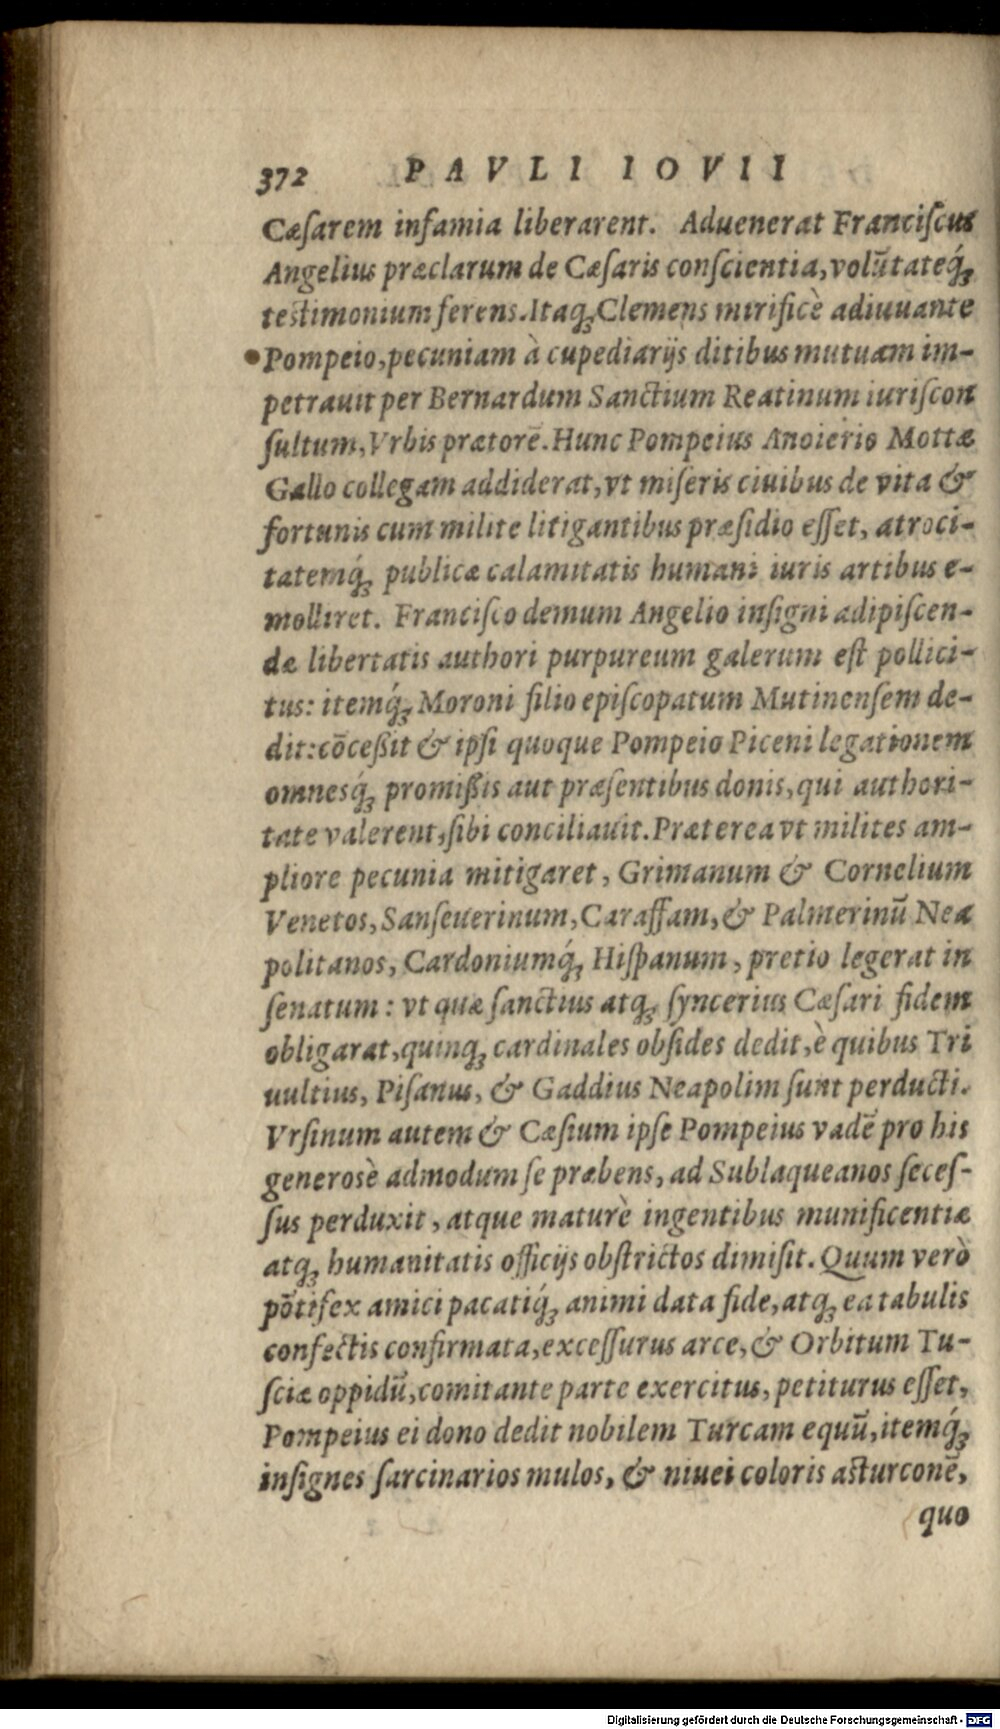 372 PAVLI IOVII
Cæſarem infamia liberarent. Aduenerat Franciſcus
Angelius præclarum de Cæſaris conſcientia, volūtateq́ꝫ
testimonium ferens. Itaqꝫ Clemens mirificè adiuuante
Pompeio, pecuniam à cupediarijs ditibus mutuam im-
petrauit per Bernardum Sanctium Reatinum iuriſcon
ſultum, Vrbis prætorē. Hunc Pompeius Anoierio Mottæ
Gallo collegam addiderat, vt miſeris ciuibus de vita &
fortunis cum milite litigantibus præſidio eſſet, atroci-
tatemq́ꝫ publicæ calamitatis humani iuris artibus e-
molliret. Franciſco demum Angelio inſigni adipiſcen-
dæ libertatis authori purpureum galerum eſt pollici-
tus: itemq́ꝫ Moroni filio epiſcopatum Mutinenſem de-
dit: cōceßit & ipſi quoque Pompeio Piceni legationem
omnesq́ꝫ promißis aut præſentibus donis, qui authori-
tate valerent, ſibi conciliauit. Præterea vt milites am-
pliore pecunia mitigaret, Grimanum & Cornelium
Venetos, Sanſeuerinum, Caraffam, & Palmerinū Nea
politanos, Cardoniumq́ꝫ Hiſpanum, pretio legerat in
ſenatum: vt quæ ſanctius atqꝫ ſyncerius Cæſari fidem
obligarat, quinqꝫ cardinales obſides dedit, è quibus Tri
uultius, Piſanus, & Gaddius Neapolim ſunt perducti.
Vrſinum autem & Cæſium ipſe Pompeius vadē pro his
generosè admodum ſe præbens, ad Sublaqueanos ſeceſ-
ſus perduxit, atque maturè ingentibus munificentiæ
atqꝫ humanitatis officijs obſtrictos dimiſit. Quum verò
pōtifex amici pacatiq́ꝫ animi data fide, atqꝫ ea tabulis
confectis confirmata, exceſſurus arce, & Orbitum Tu-
ſciæ oppidū, comitante parte exercitus, petiturus eſſet,
Pompeius ei dono dedit nobilem Turcam equū, itemq́ꝫ
inſignes ſarcinarios mulos, & niuei coloris asturconē,
quo
Digitalisierung gefördert durch die Deutsche Forschungsgemeinschaft - DFG